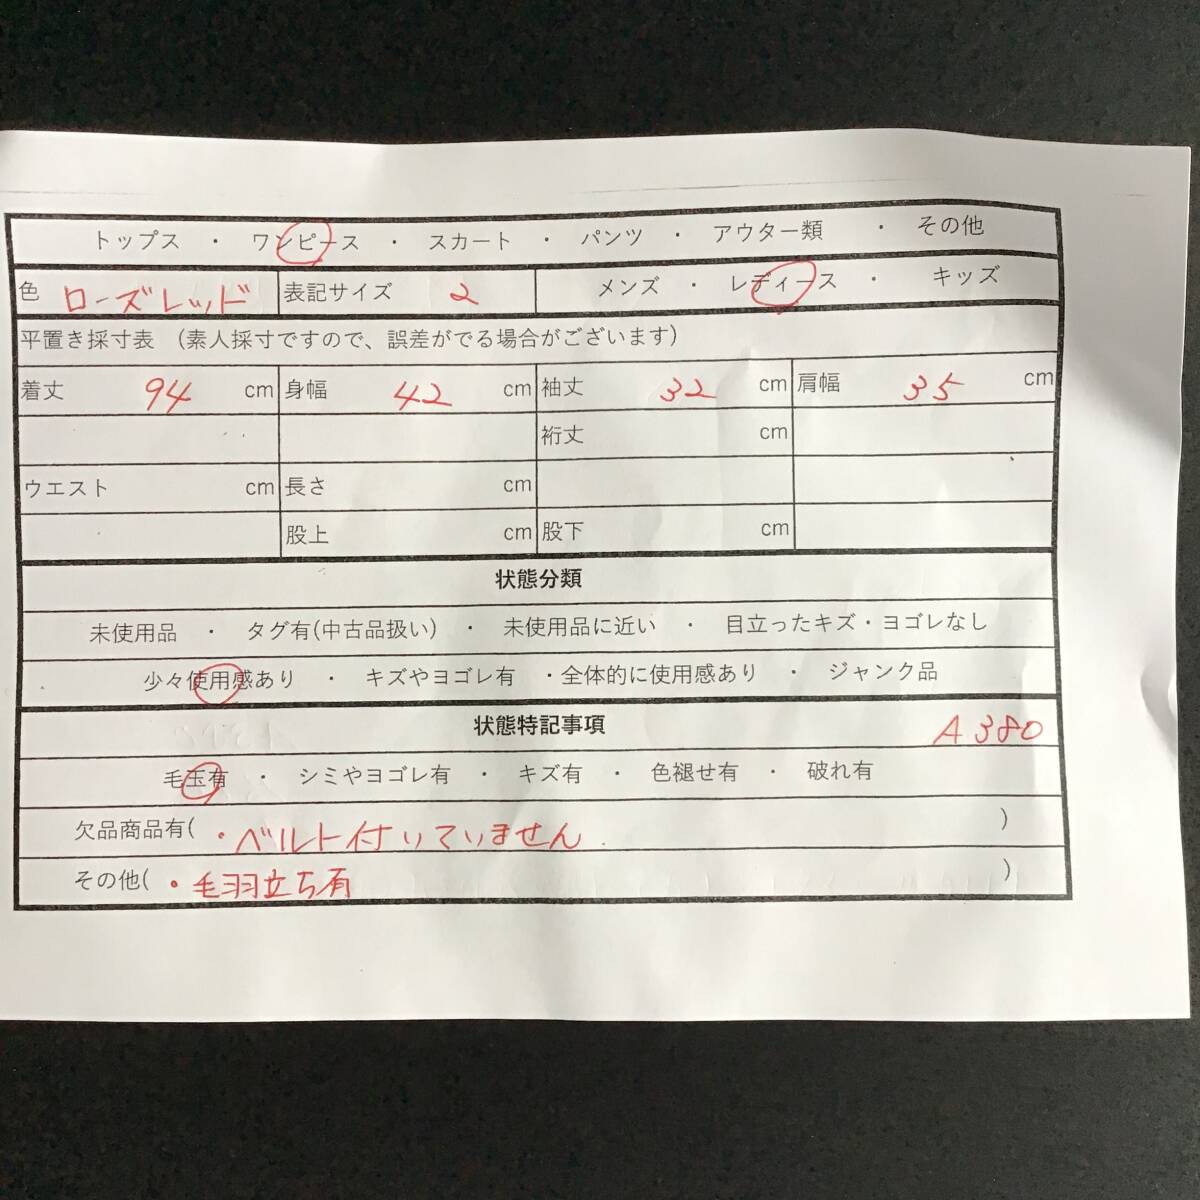 トップス ・ ワンピース ・ スカート ・ パンツ ・ アウター類 ・ その他
色 ローズレッド 表記サイズ 2 メンズ ・ レディース ・ キッズ
平置き採寸表 (素人採寸ですので、誤差がでる場合がございます)
着丈 94 cm 身幅 42 cm 袖丈 32 cm 肩幅 35 cm
裄丈 cm
ウエスト cm 長さ cm
股上 cm 股下 cm
状態分類
未使用品 ・ タグ有(中古品扱い) ・ 未使用品に近い ・ 目立ったキズ・ヨゴレなし
少々使用感あり ・ キズやヨゴレ有 ・全体的に使用感あり ・ ジャンク品
状態特記事項 A380
毛玉有 ・ シミやヨゴレ有 ・ キズ有 ・ 色褪せ有 ・ 破れ有
欠品商品有( ・ベルト付いていません )
その他( ・毛羽立ち有 )